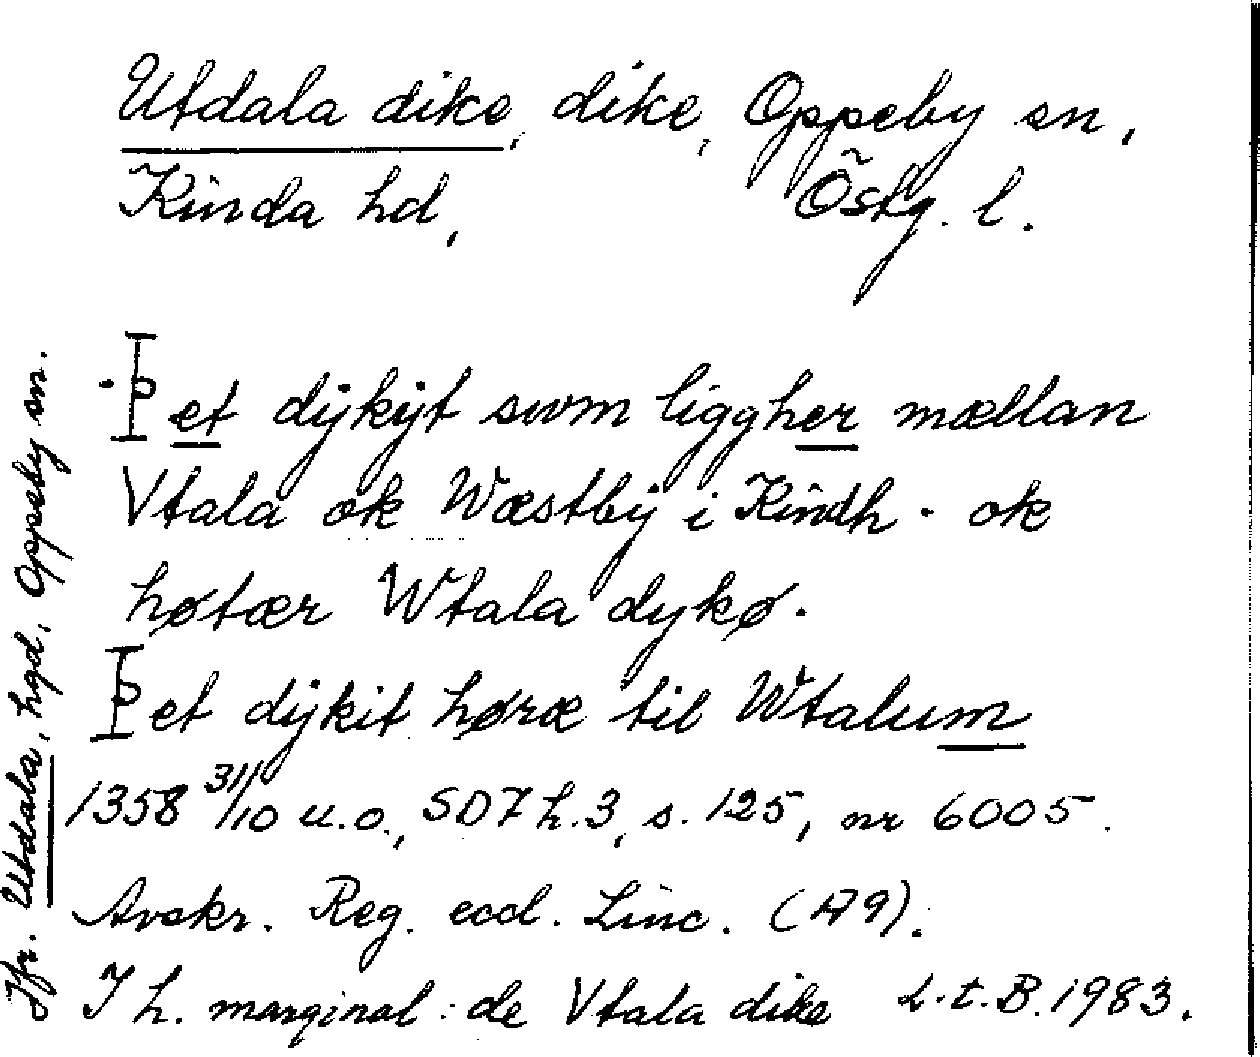 Utdala dike, dike, Oppeby sn,
Kinda hd, Östg. l.
·Þet dÿkÿt swm liggher mællan
Vtala ok Wæstbÿ i Kindh · ok
høtær Wtala dykø.
Þet dÿkit høræ til Wtalum
1358 31/10 u.o., SD7 h.3, s. 125, nr 6005.
Avskr. Reg. eccl. Linc. (A9).
I h. marginal: de Vtala dike L.t.B. 1983.
Jfr. Utdala, hgd, Oppeby sn.